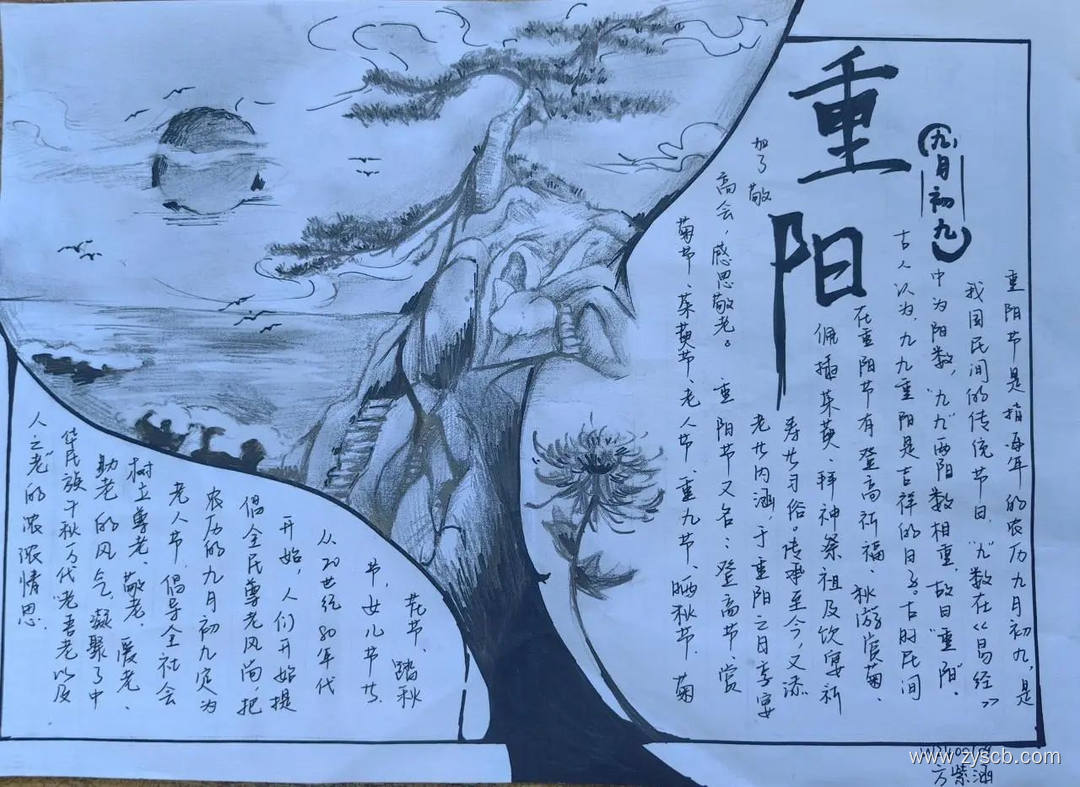 重阳
(九月初九)
重阳节是指每年的农历九月初九,是
我国民间的传统节日,"九"数在《易经》
中为阳数,"九九"两阳数相重,故曰"重阳"。
古人认为,九九重阳是吉祥的日子。古时民间
在重阳节有登高祈福、秋游赏菊、
佩插茱萸、拜神祭祖及饮宴祈
寿廿习俗。传承至今,又添
加了敬
老廿内涵,于重阳之日享宴
高会,感恩敬老。重阳节又名:登高节、赏
菊节、茱萸节、老人节、重九节、晒秋节、菊
花节、踏秋
节,女儿节廿。
从20世纪80年代
开始,人们开始提
倡全民尊老风尚,把
农历的九月初九定为
老人节,倡导全社会
树立尊老、敬老、爱老、
助老的风气,凝聚了中
华民族千秋万代"老吾老以及
人之老"的浓浓情思
方紫涵
www.zyscb.com